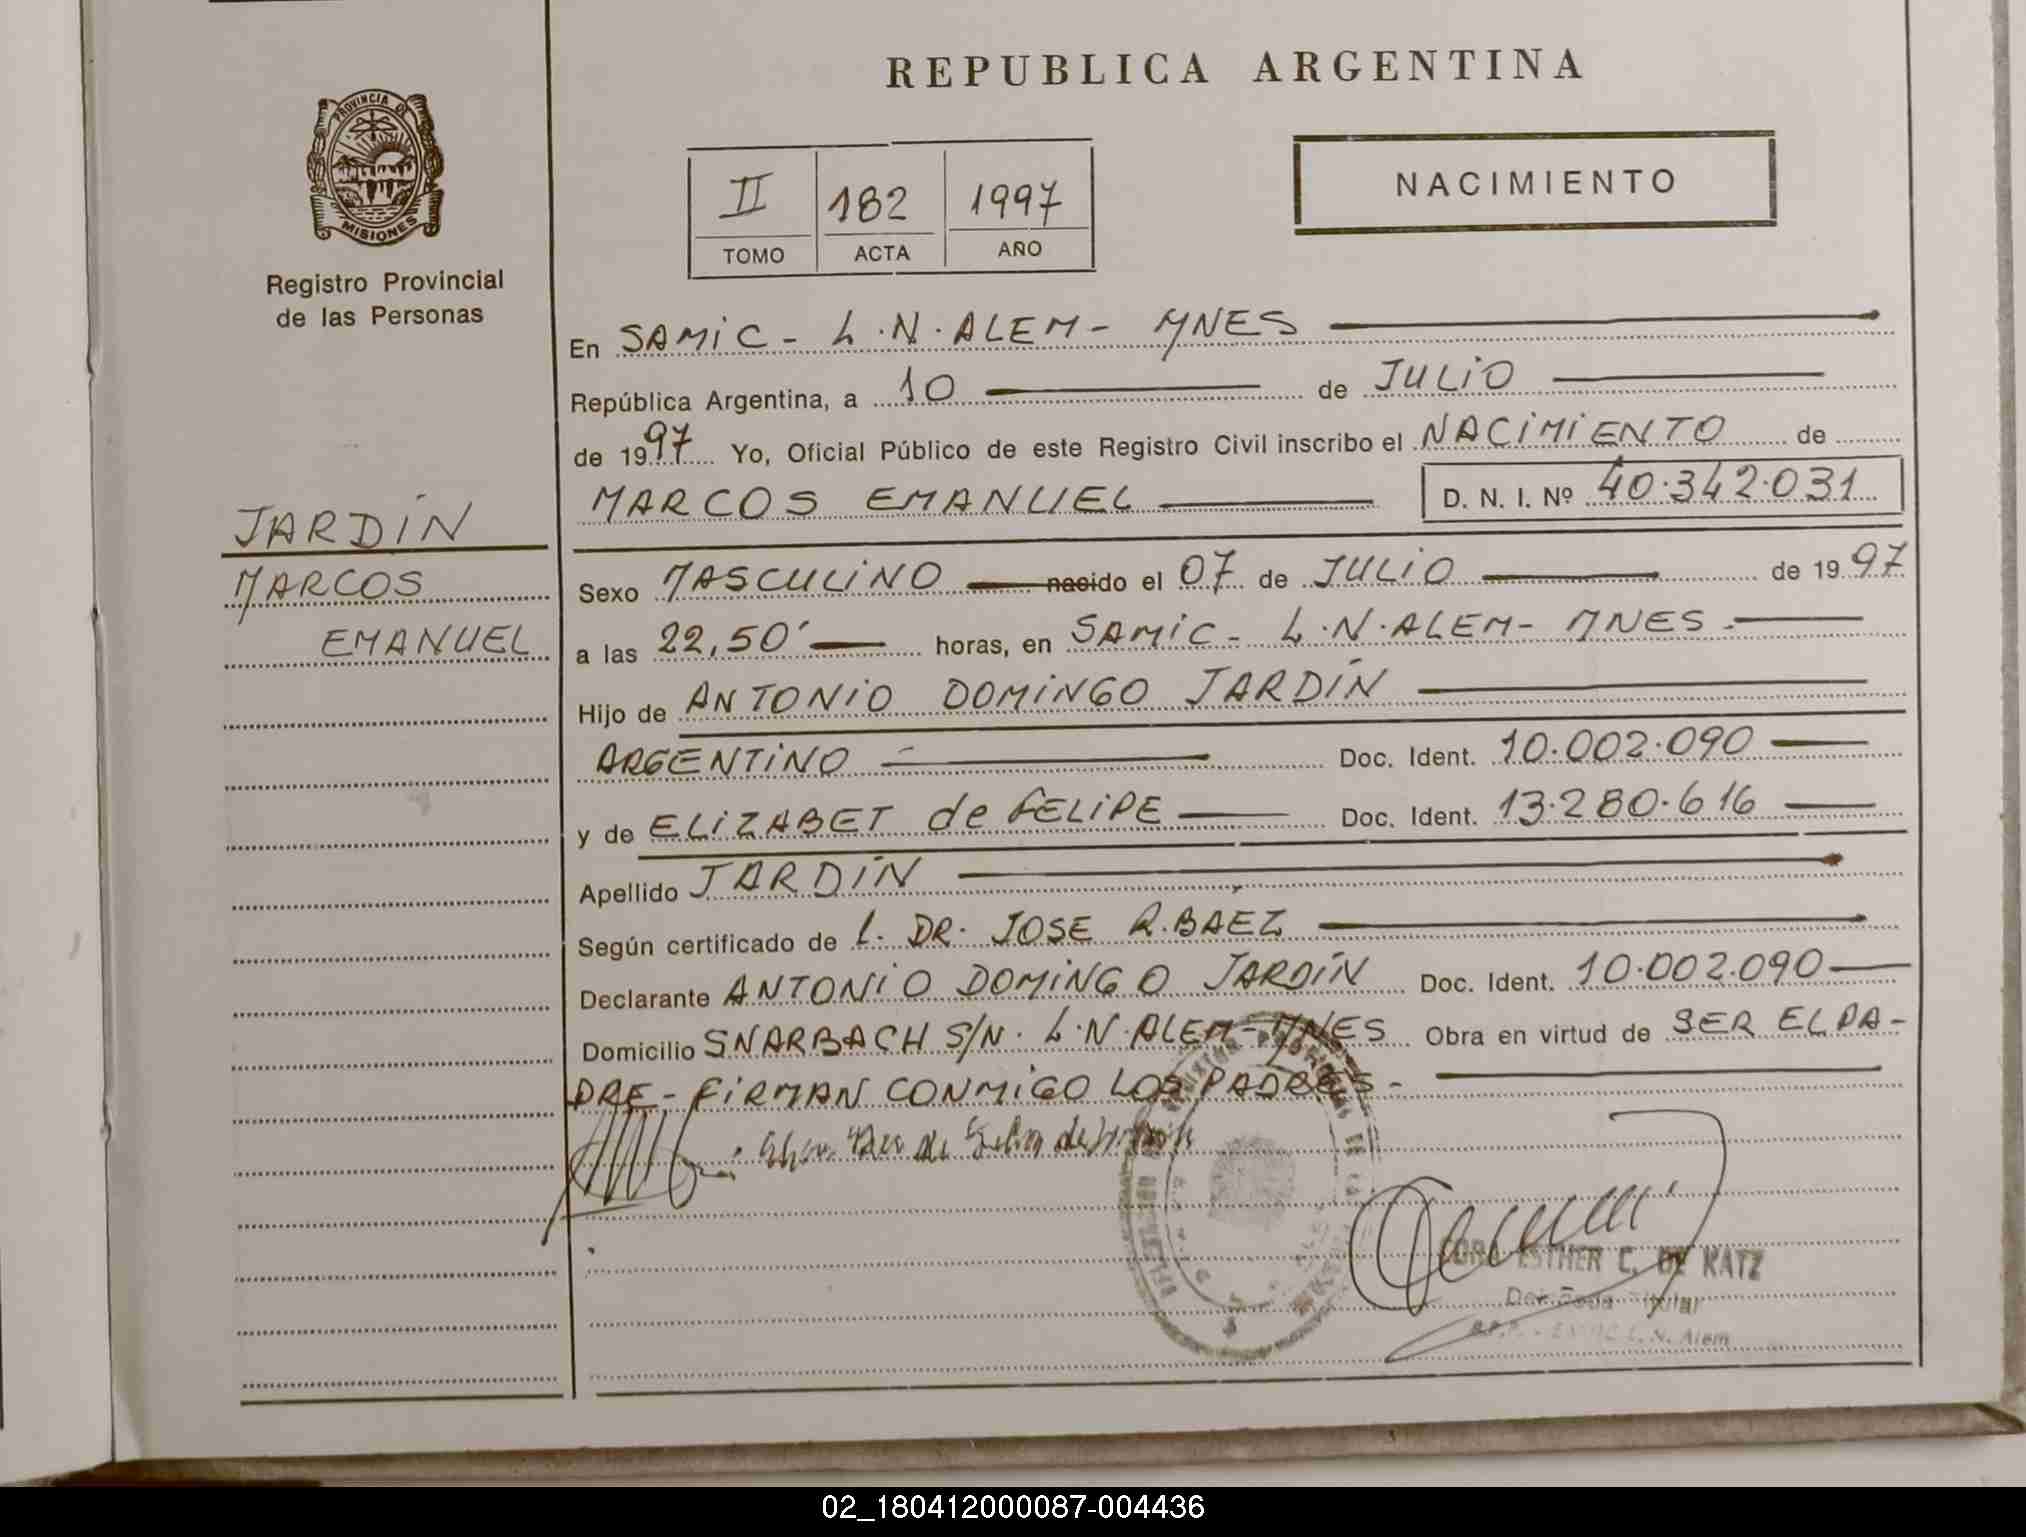 REPUBLICA ARGENTINA
PROVINCIA DE
MISIONES
Registro Provincial
de las Personas
II 182 1997
TOMO ACTA AÑO
NACIMIENTO
En SAMIC - L.N.ALEM - MNES
República Argentina, a 10 de JULIO
de 1997 Yo, Oficial Público de este Registro Civil inscribo el NACIMIENTO de
MARCOS EMANUEL D. N. I. Nº 40.342.031
JARDÍN
MARCOS
EMANUEL
Sexo MASCULINO nacido el 07 de JULIO de 1997
a las 22,50' horas, en SAMIC - L.N.ALEM - MNES -
Hijo de ANTONIO DOMINGO JARDÍN
ARGENTINO Doc. Ident. 10.002.090
y de ELIZABET de FELIPE Doc. Ident. 13.280.616
Apellido JARDÍN
Según certificado de L. DR. JOSE R. BAEZ
Declarante ANTONIO DOMINGO JARDÍN Doc. Ident. 10.002.090
Domicilio SNARBACH S/N. L.N.ALEM - MNES Obra en virtud de SER EL PA-
DRE - FIRMAN CONMIGO LOS PADRES -
ESTHER C. DE KATZ
Titular
L. N. Alem
02_180412000087-004436